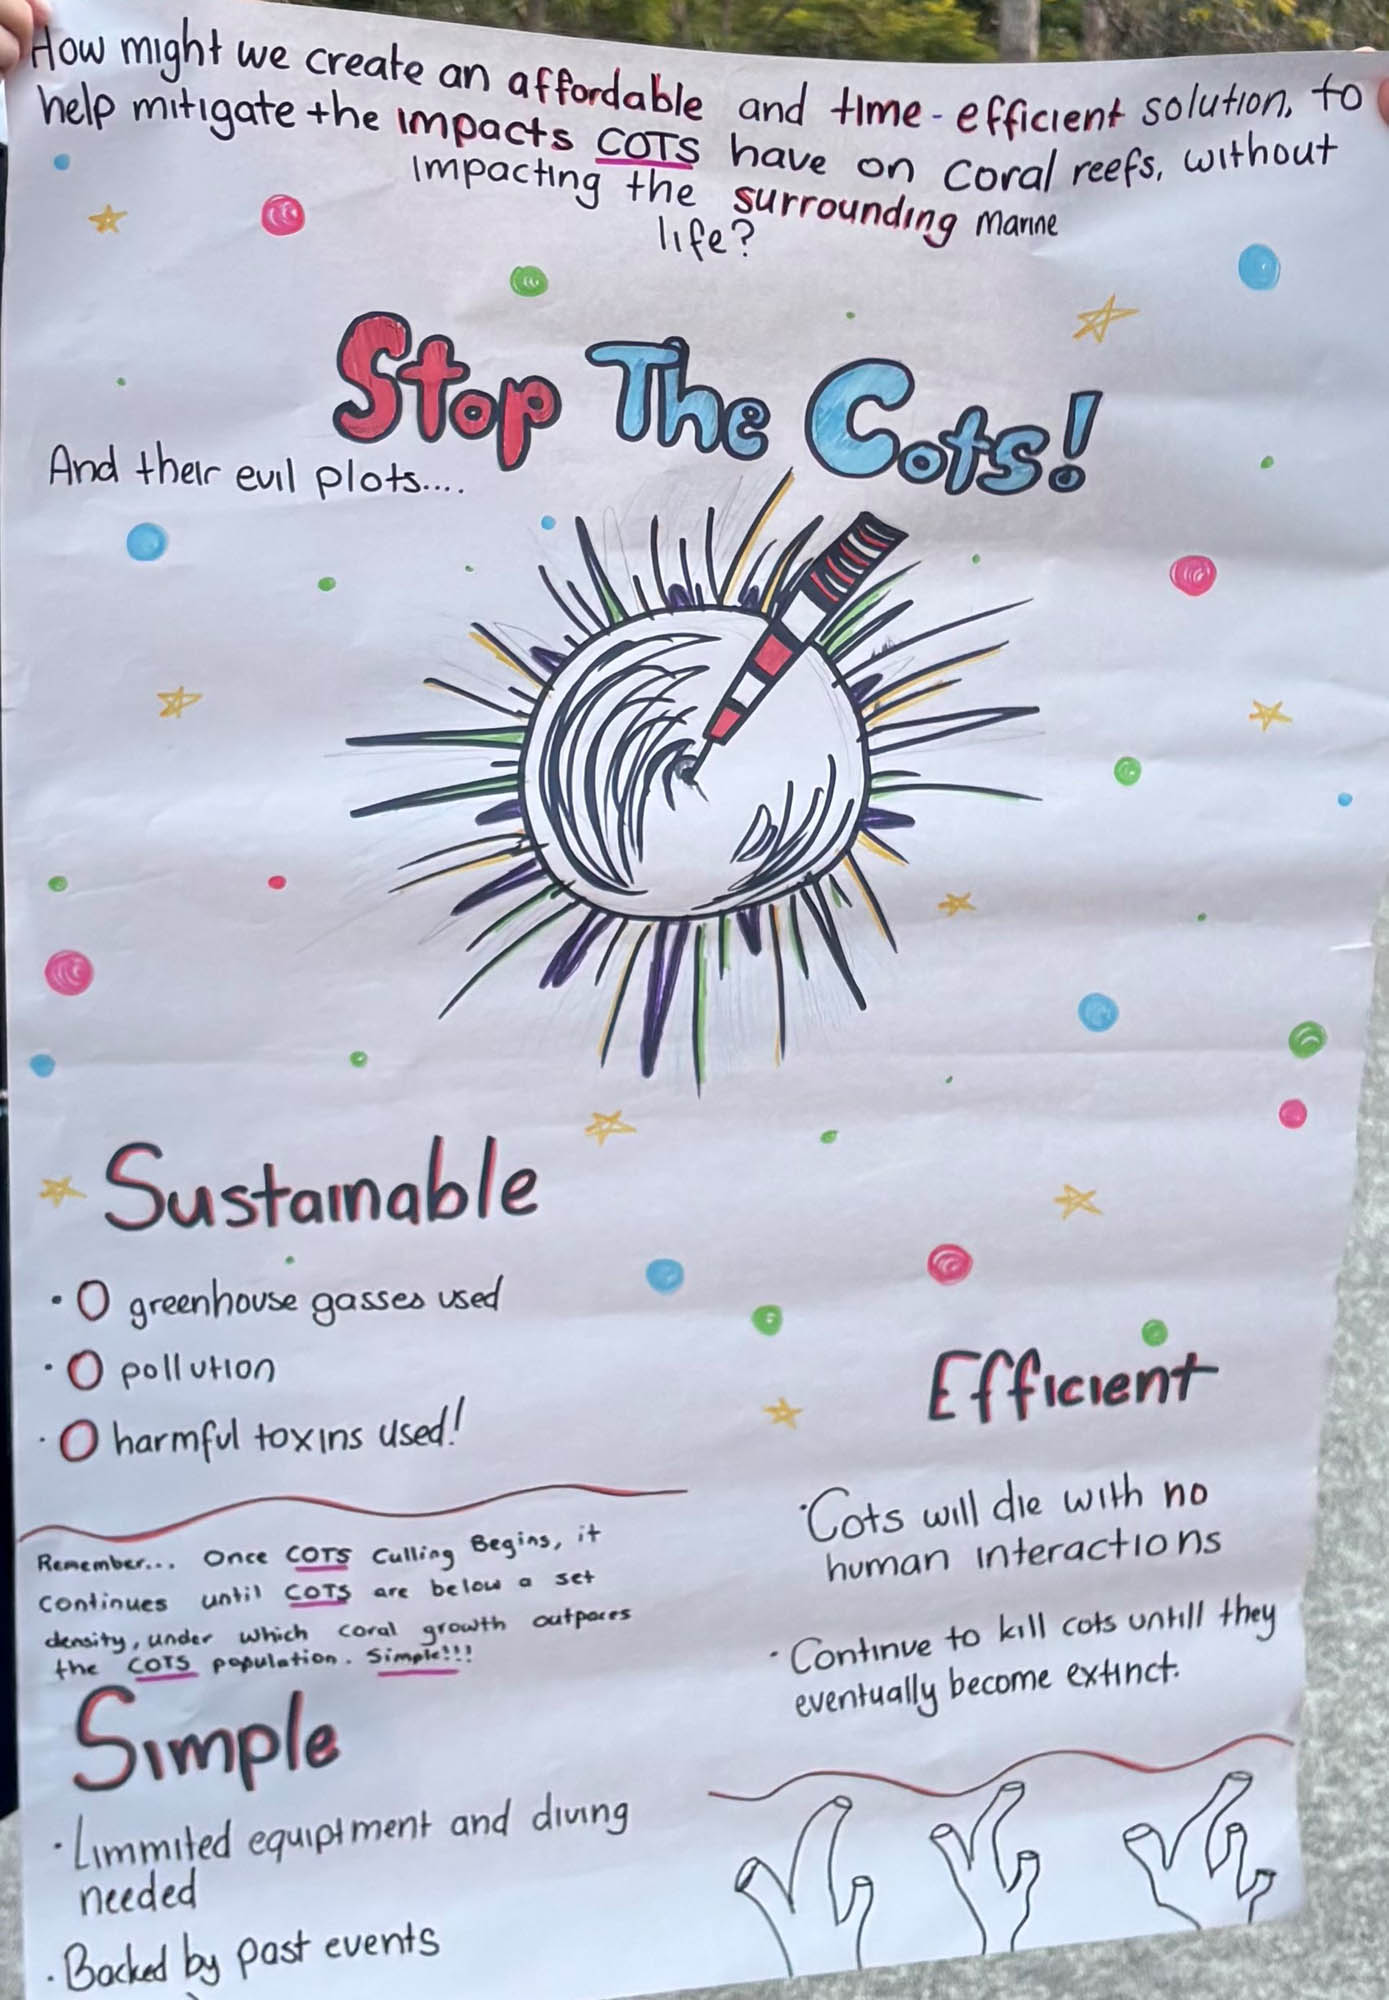 How might we create an affordable and time-efficient solution, to
help mitigate the impacts COTS have on coral reefs, without
impacting the surrounding marine
life?
Stop The Cots!
And their evil plots....
Sustainable
• 0 greenhouse gasses used
• 0 pollution
• 0 harmful toxins used!
Remember... Once COTS Culling Begins, it
continues until COTS are below a set
density, under which coral growth outpaces
the COTS population. Simple!!!
Efficient
• Cots will die with no
human interactions
• Continue to kill cots untill they
eventually become extinct.
Simple
• Limmited equiptment and diving
needed
• Backed by past events